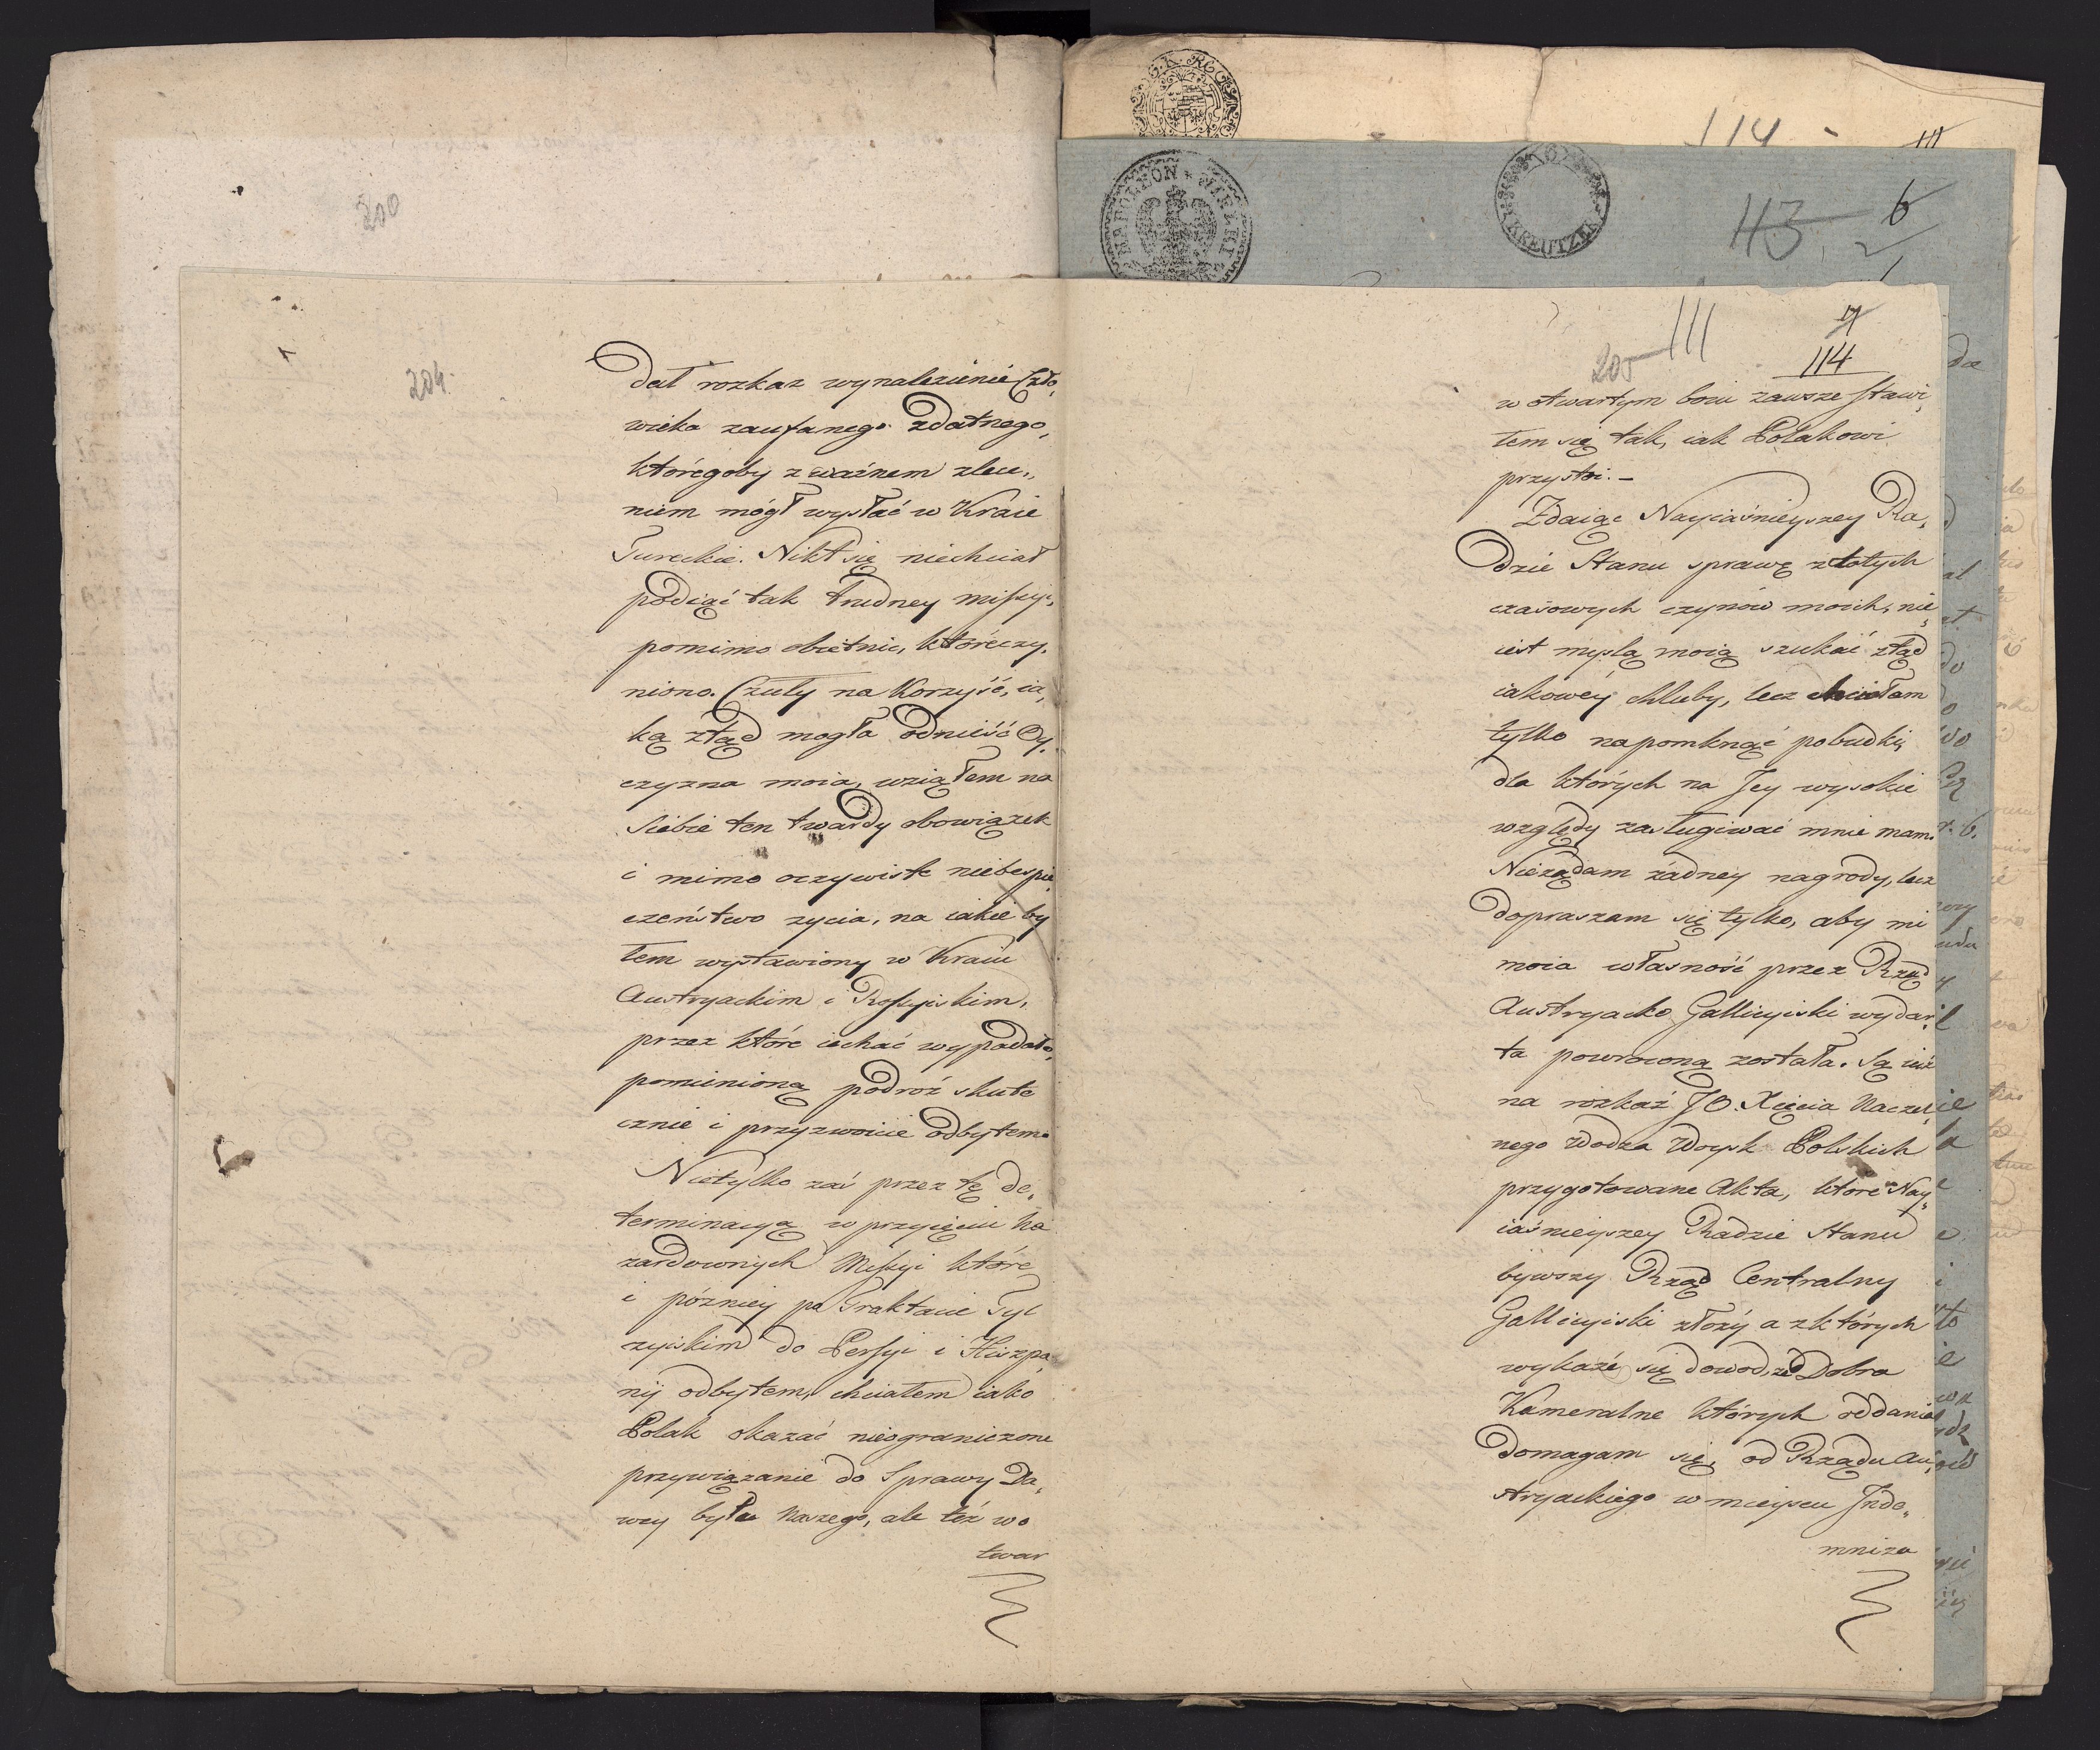 200
204.
dał rozkaz wynalezienie Czło„
wieka zaufanego zdatnego,
któregoby z ważnem zlece„
niem mógł wysłać w Kraie
Tureckie. Nikt się niechciał
podiąć tak trudney missyi,
pomimo obietnic, któreczy„
niono. Czuły na Korzyść, ia„
ką ztąd mogła odnieść Oy„
czyzna moia, wziąłem na
siebie ten twardy obowiązek
i mimo oczywiste niebespie„
czeństwo zycia, na iakie by
łem wystawiony w Kraiu
Austryackim i Rossyiskim,
przez które iechać wypadało,
pomienioną podroż skute
cznie i przyzwoicie odbyłem.
Nietylko zaś przez tę de„
terminacyą w przyięciu ha
zardownych Missyi które
i pózniey po Traktacie Tyl
zyiskim do Persyi i Hiszpa„
nij odbyłem, chciałem iako
Polak okazać nieograniczone
przywiązanie do Sprawy Da„
wcy bytu Naszego, ale też wo
twar
G. K. REG
114
NAPOLEON WIELKI
KREUTZER
113
6
111
205
114
w otwartym boiu zawsze stawi„
łem się tak, iak Polakowi
przystoi.–
Zdaiąc Nayiaśnieyszey Ra„
dzie Stanu sprawę z totych
czasowych czynów moich, nie„
iest myslą moią szukać ztąd
iakowéy chluby, lecz chciałam
tylko napomknąć pobudki,
dla których na Jey wysokie
względy zasługiwać mnie mam.
Nieządam żadney nagrody, lecz
dopraszam się tylko, aby mi
moia własność przez Rząd
Austryacko Gallicyiski wydar„
ta powroconą została. Są iuż
na rozkaz JO. Xięcia Naczel„
nego Wodza Woysk Polskich
przygotowane Akta, które Nay„
iaśnieyszey Radzie Stanu
bywszy Rząd Centralny
Gallicyiski złoży a z których
wykaże się dowod, że Dobra
Kameralne których oddania
domagam się, od Rządu Au„
stryackiego w mieyscu Inde„
mniza